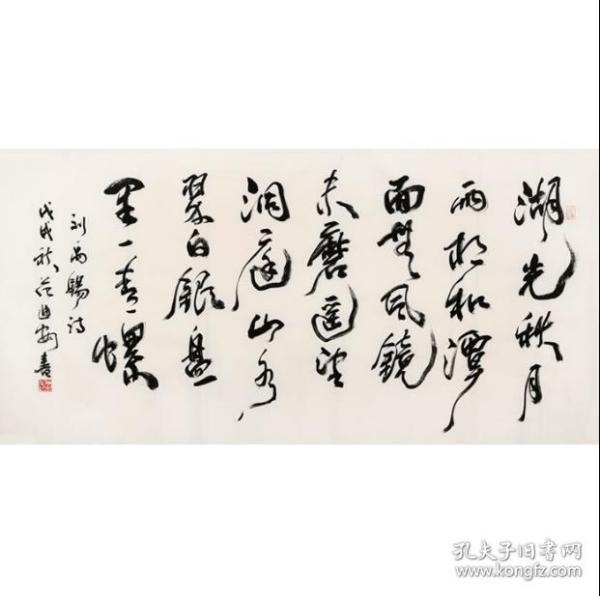 湖光秋月
两相和潭
面無风鏡
未磨遥望
洞庭山水
翠白銀盘
里一青螺
刘禹锡诗
戊戌秋范迪安書
孔夫子旧书网
www.kongfz.com